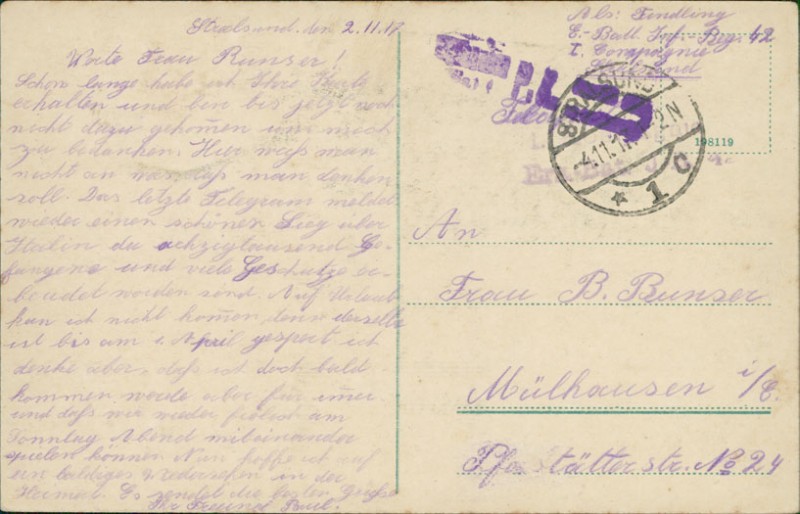 Stralsund, den 2.11.17
Werte Frau Runser!
Schon lange habe ich Ihre Karte
erhalten und bin bis jetzt noch
nicht dazu gekommen um mich
zu bedanken. Hier weiß man
nicht an was man denken
soll. Das letzte Telegram meldet
wieder einen schönen Sieg über
Italin da achzigtausend Ge-
fangene und viele Geschütze er-
beutet worden sind. Auf Urlaub
kan ich nicht komen, denn derselbe
ist bis am 1. April gesperrt ich
denke aber, daß ich doch bald
kommen werde aber für imer
und daß wir wieder am
Sonntag Abend miteinander
spielen können. Nun hoffe ich auf
ein baldiges Wiedersehen in der
Heimat. Es sendet die besten Grüße
Ihr Freund Paul.
Abs: Fendling
E.-Batl. Inf.-Reg. 42
I. Compagnie
Stralsund
STRALSUND
-4.11.17. 1-2N
* 1 c
198119
An
Frau B. Runser
Mülhausen i/E.
Pfastätterstr. No 24